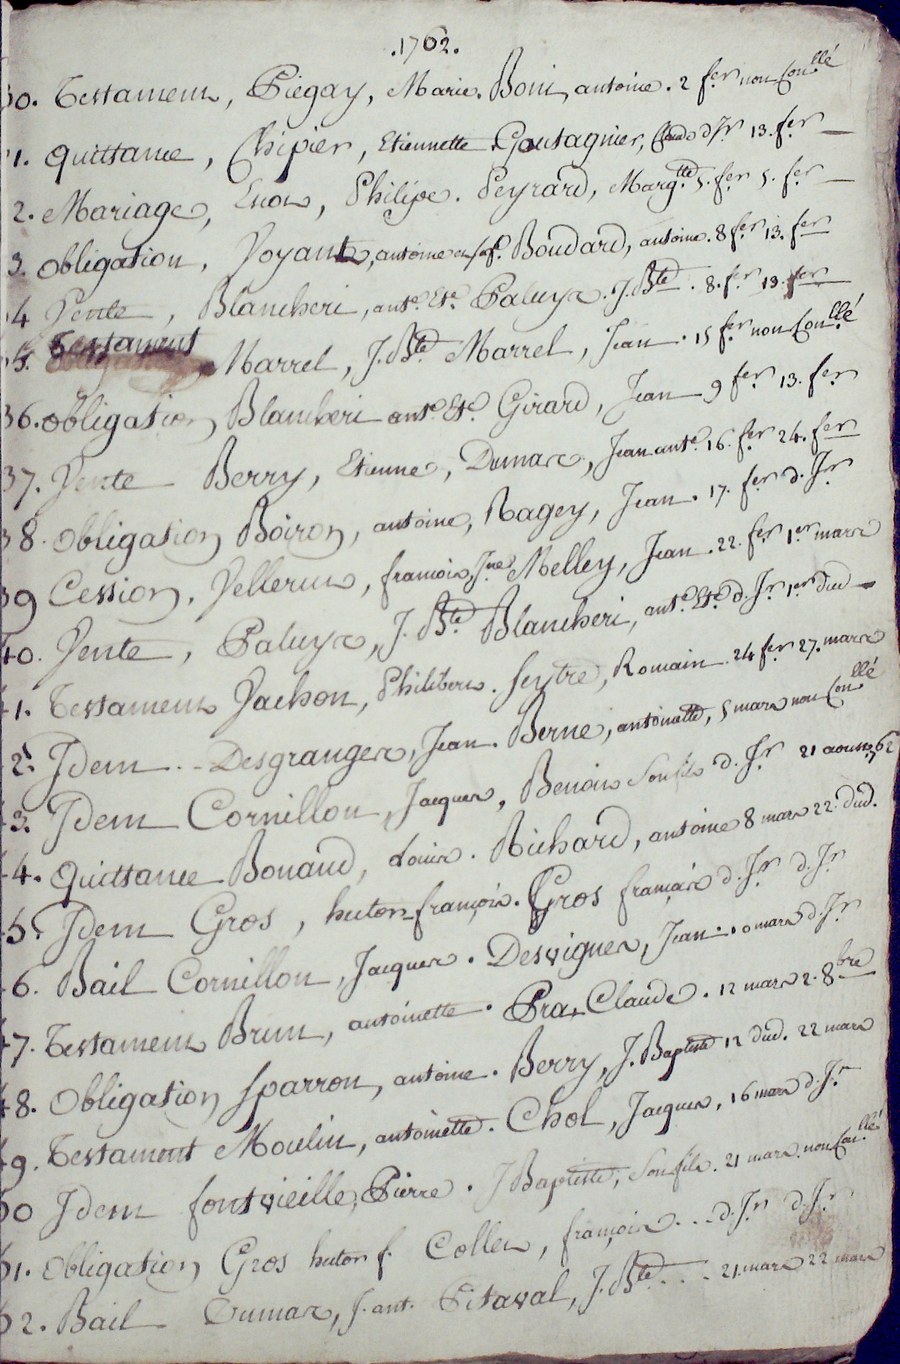 .1762.
30. Testament, Piegay, Marie. Boni, antoine. 2 fer non Conllé
31. Quittance, Chipier, Etiennette Goutagnier, Claude d. Jr 13. fer
2. Mariage, Enou, Philipe. Peyrard, Margtte 5. fer 5. fer
3. Obligation, Voyant, antoine Boudard, antoine. 8 fer 13. fer
34 Vente, Blancheri, ant.e Et.e Paluya. J. Bte. 8. fer 13. fer
35. Testament Marrel, J. Bte Marrel, Jean. 15 fer non Conllé
36. Obligation Blancheri ant.e Et.e Girard, Jean 9 fer 13. fer
37. Vente Berry, Etienne, Dumax, Jean ant.e 16. fer 24. fer
38. Obligation Boiron, antoine, Ragey, Jean. 17. fer d. Jr
39 Cession, Pellerin, françois, Jne Melley, Jean. 22. fer 1er mars
40. Vente, Paluya, J. Bte Blancheri, ant.e Et.e d. Jr 1er dud
41. Testament Vachon, Philibert. Seytre, Romain. 24 fer 27. mars
2. Idem... Desgranges, Jean. Berne, antoinette, 5 mars non Conllé
3. Idem Cornillon, Jacques, Benoit Son fils d. Jr 21 aoust 62
44. Quittance Bonand, Louis. Richard, antoine 8 mars 22 dud.
45. Idem Gros, huton françois. Gros françois d. Jr d. Jr
46. Bail Cornillon, Jacques. Desvignes, Jean. mars d. Jr
47. Testament Brun, antoinette. Pra, Claude. 12 mars 2. 8bre
48. Obligation Sparron, antoine. Berry, J. Baptiste 12 dud. 22 mars
49. Testament Moulin, antoinette. Chol, Jacques, 16 mars d. Jr
50 Idem fontvieille, Pierre. J Baptiste, Son fils. 21 mars. non Conllé
51. Obligation Gros huton f. Collet, françois... d. Jr d. Jr
52. Bail Dumax, J. ant. Pitaval, J. Bte... 21 mars 22 mars